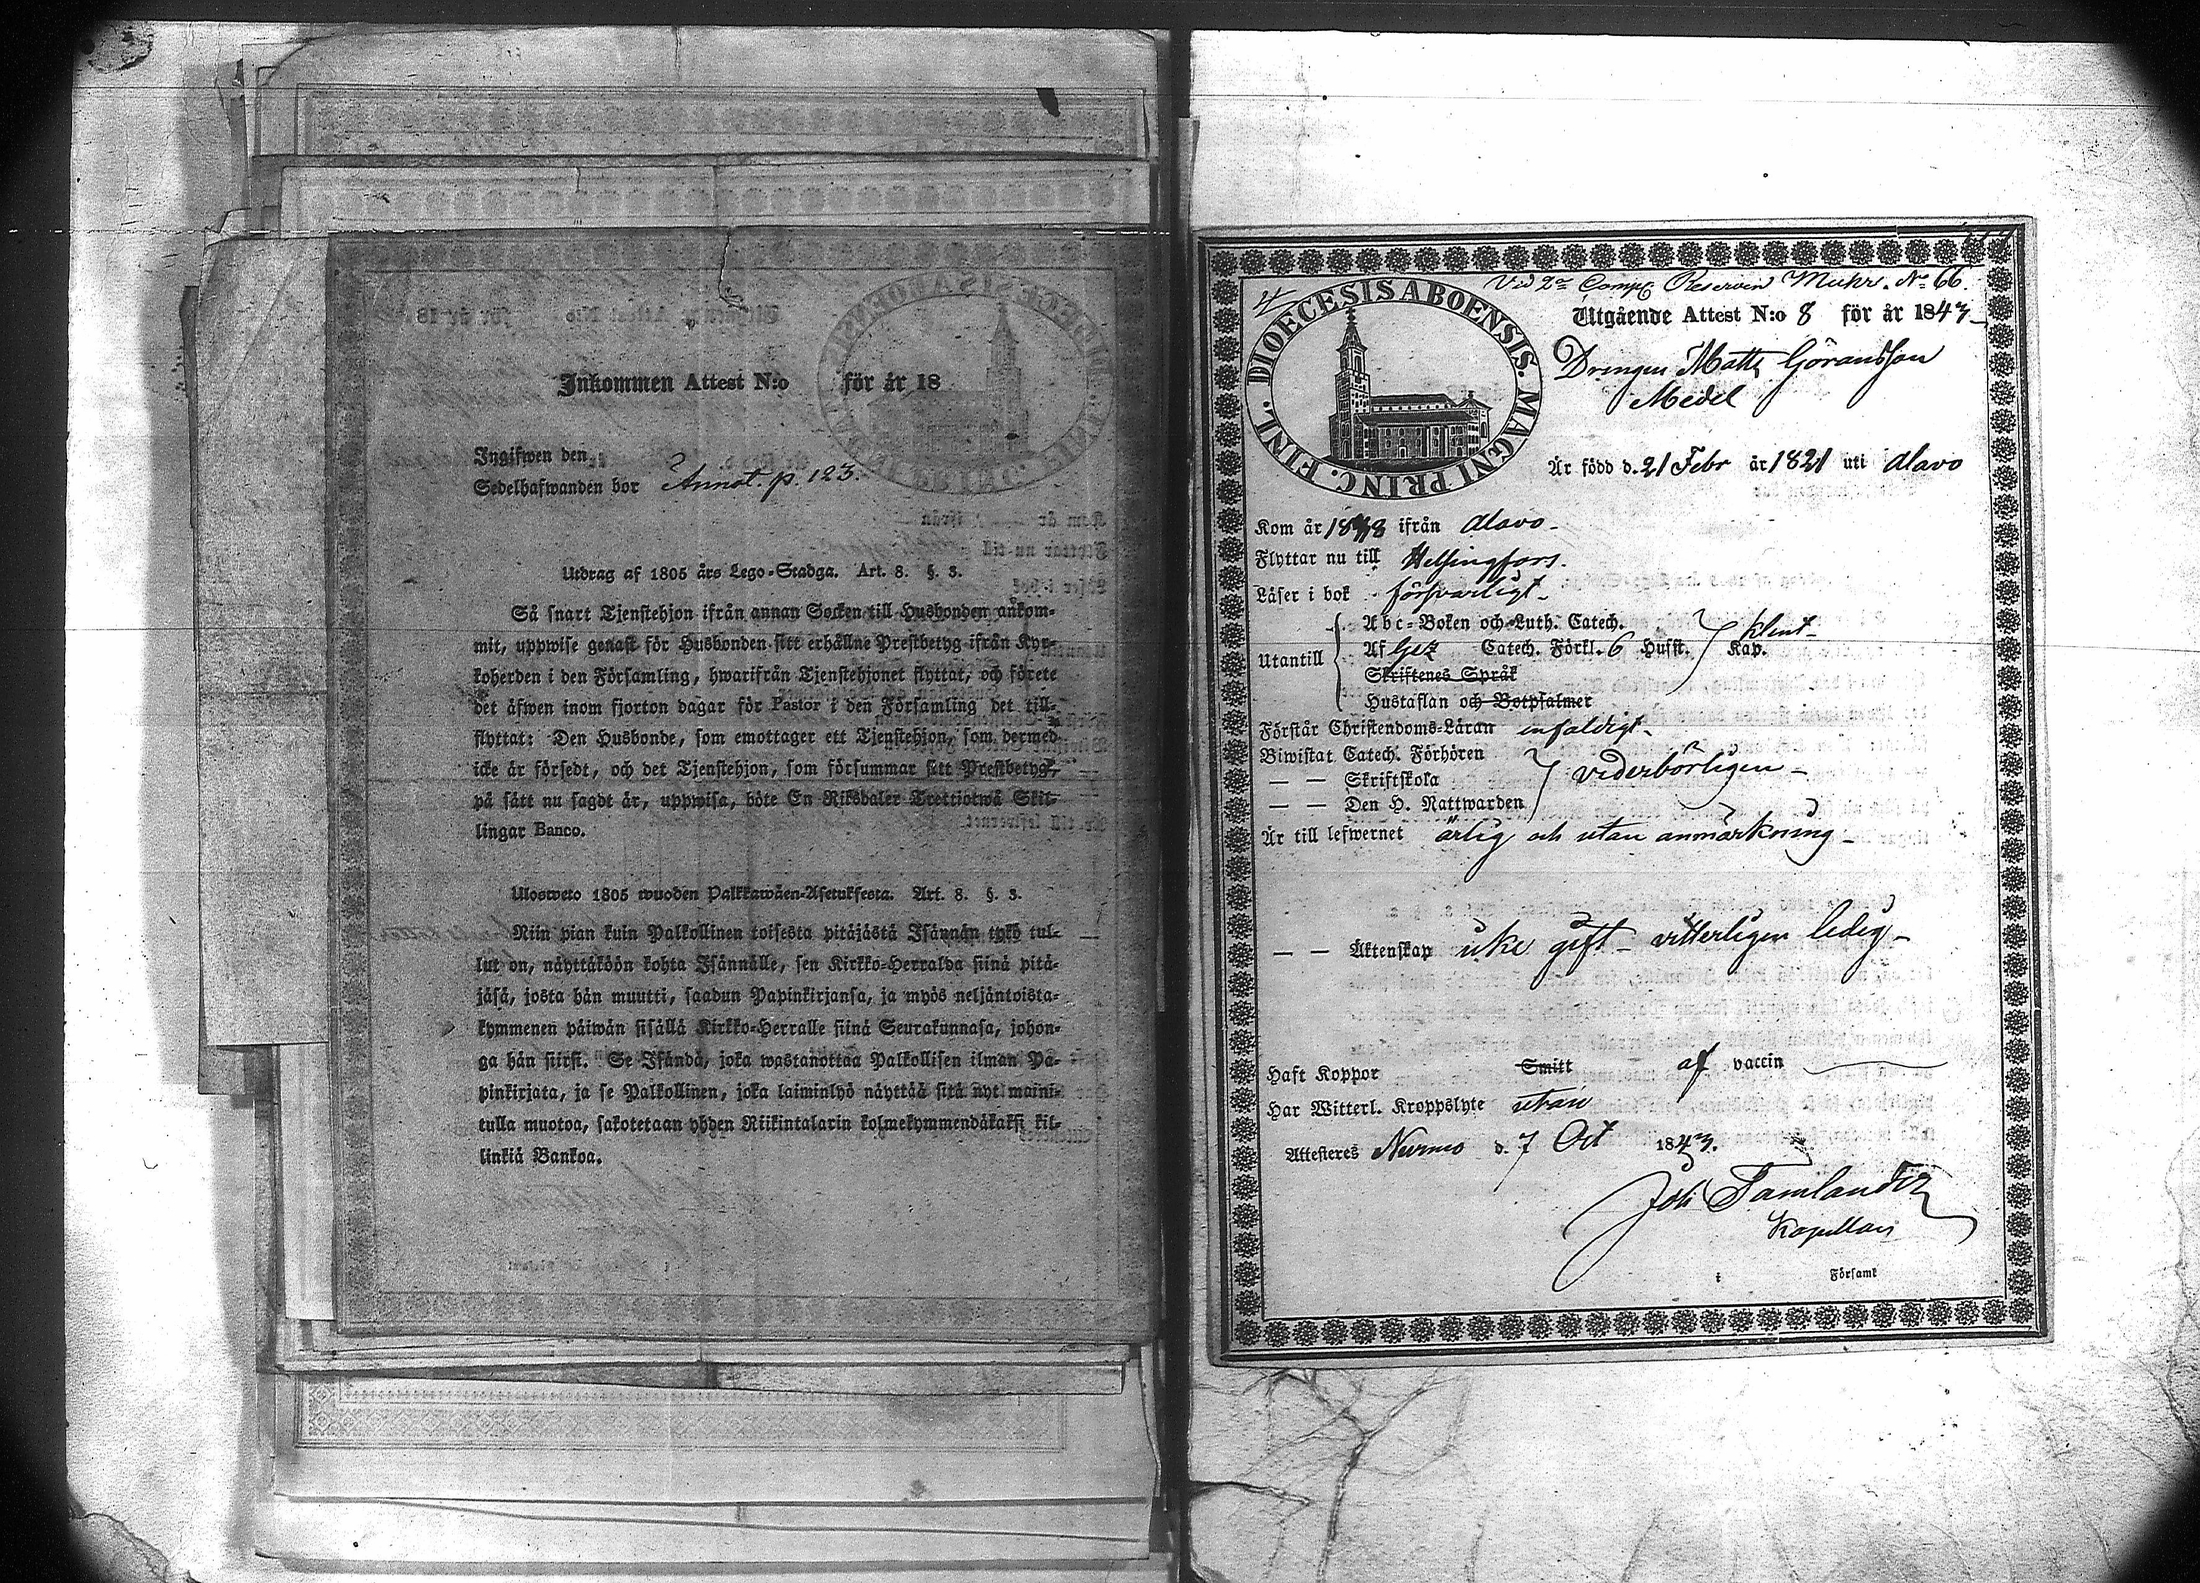 Inkommen Attest N:o för år 18
Ingifwen den
Sedelhafwanden bor Annot. p. 123.
Utdrag af 1805 års Lego-Stadga. Art. 8. §. 3.
Så snart Tjenstehjon ifrån annan Socken till Husbonden ankom-
mit, uppwise genast för Husbonden sitt erhållne Prestbetyg ifrån Kyr-
koherden i den Församling, hwarifrån Tjenstehjonet flyttat, och förete
det äfwen inom fjorton dagar för Pastor i den Församling det till-
flyttat: Den Husbonde, som emottager ett Tjenstehjon, som dermed
icke är försedt, och det Tjenstehjon, som försummar sitt Prestbetyg,
på sätt nu sagdt är, uppwisa, böte En Riksdaler Trettiotwå Skil-
lingar Banco.
Ulosweto 1805 wuoden Palkkawäen-Asetuksesta. Art. 8. §. 3.
Niin pian kuin Palkollinen toisesta pitäjästä Isännän tykö tul-
lut on, näyttäköön kohta Isännälle, sen Kirkko-Herralda siinä pitä-
jäsä, josta hän muutti, saadun Papinkirjansa, ja myös neljäntoista-
kymmenen päiwän sisällä Kirkko-Herralle siinä Seurakunnasa, johon-
ga hän siirsi. Se Isändä, joka wastanottaa Palkollisen ilman Pa-
pinkirjata, ja se Palkollinen, joka laiminlyö näyttää sitä nyt maini-
tulla muotoa, sakotetaan yhden Riikintalarin kolmekymmendäkaksi kil-
linkiä Bankoa.
FINL. DIOECESIS ABOENSIS. MAGNI PRINC.
Vid 2:a Comp. Reserven Nr 66.
Utgående Attest N:o 8 för år 1843
Drengen Matts Göransson
Medel
Är född d. 21 Febr år 1821 uti Alavo
Kom år 18 ifrån Alavo
Flyttar nu till Helsingfors.
Läser i bok försvarligt
Abc-Boken och Luth. Catech.
Utantill Af Catech. Förkl. 6 Husst. Kap. klent
Skriftenes Språk
Hustaflan och Botpsalmer
Förstår Christendoms-Läran enfaldigt
Biwistat Catech. Förhören
— — Skriftskola vederbörligen
— — Den H. Nattwarden
Är till lefwernet ärlig och utan anmärkning
— — Äktenskap icke gift vitterligen ledig
Haft Koppor Smitt af vaccin
Har Witterl. Kroppslyte utan
Attesteres Nurmo d. 7 Oct 1843.
Joh Tamlander
Kapellan
i Församl